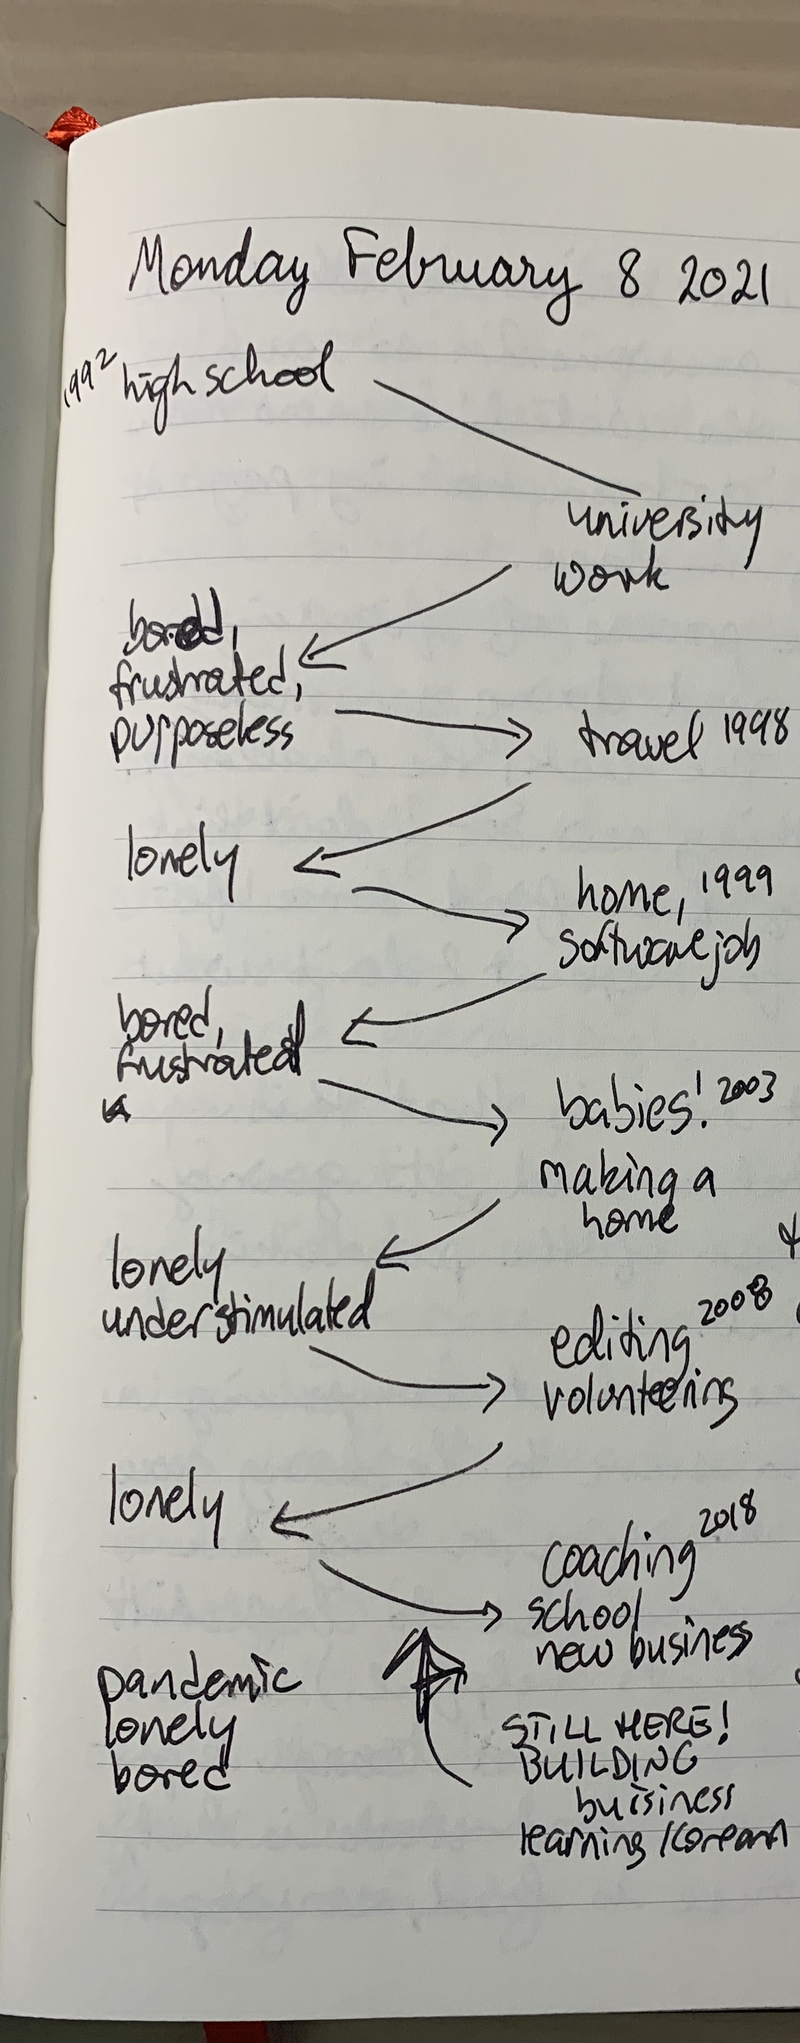 Monday February 8 2021
1992 high school
university
work
bored,
frustrated,
purposeless
travel 1998
lonely
home, 1999
software job
bored,
frustrated
babies! 2003
making a
home
lonely
understimulated
editing 2008
volunteering
lonely
coaching 2018
school
new business
pandemic
lonely
bored
STILL HERE!
BUILDING
buisiness
learning Korean